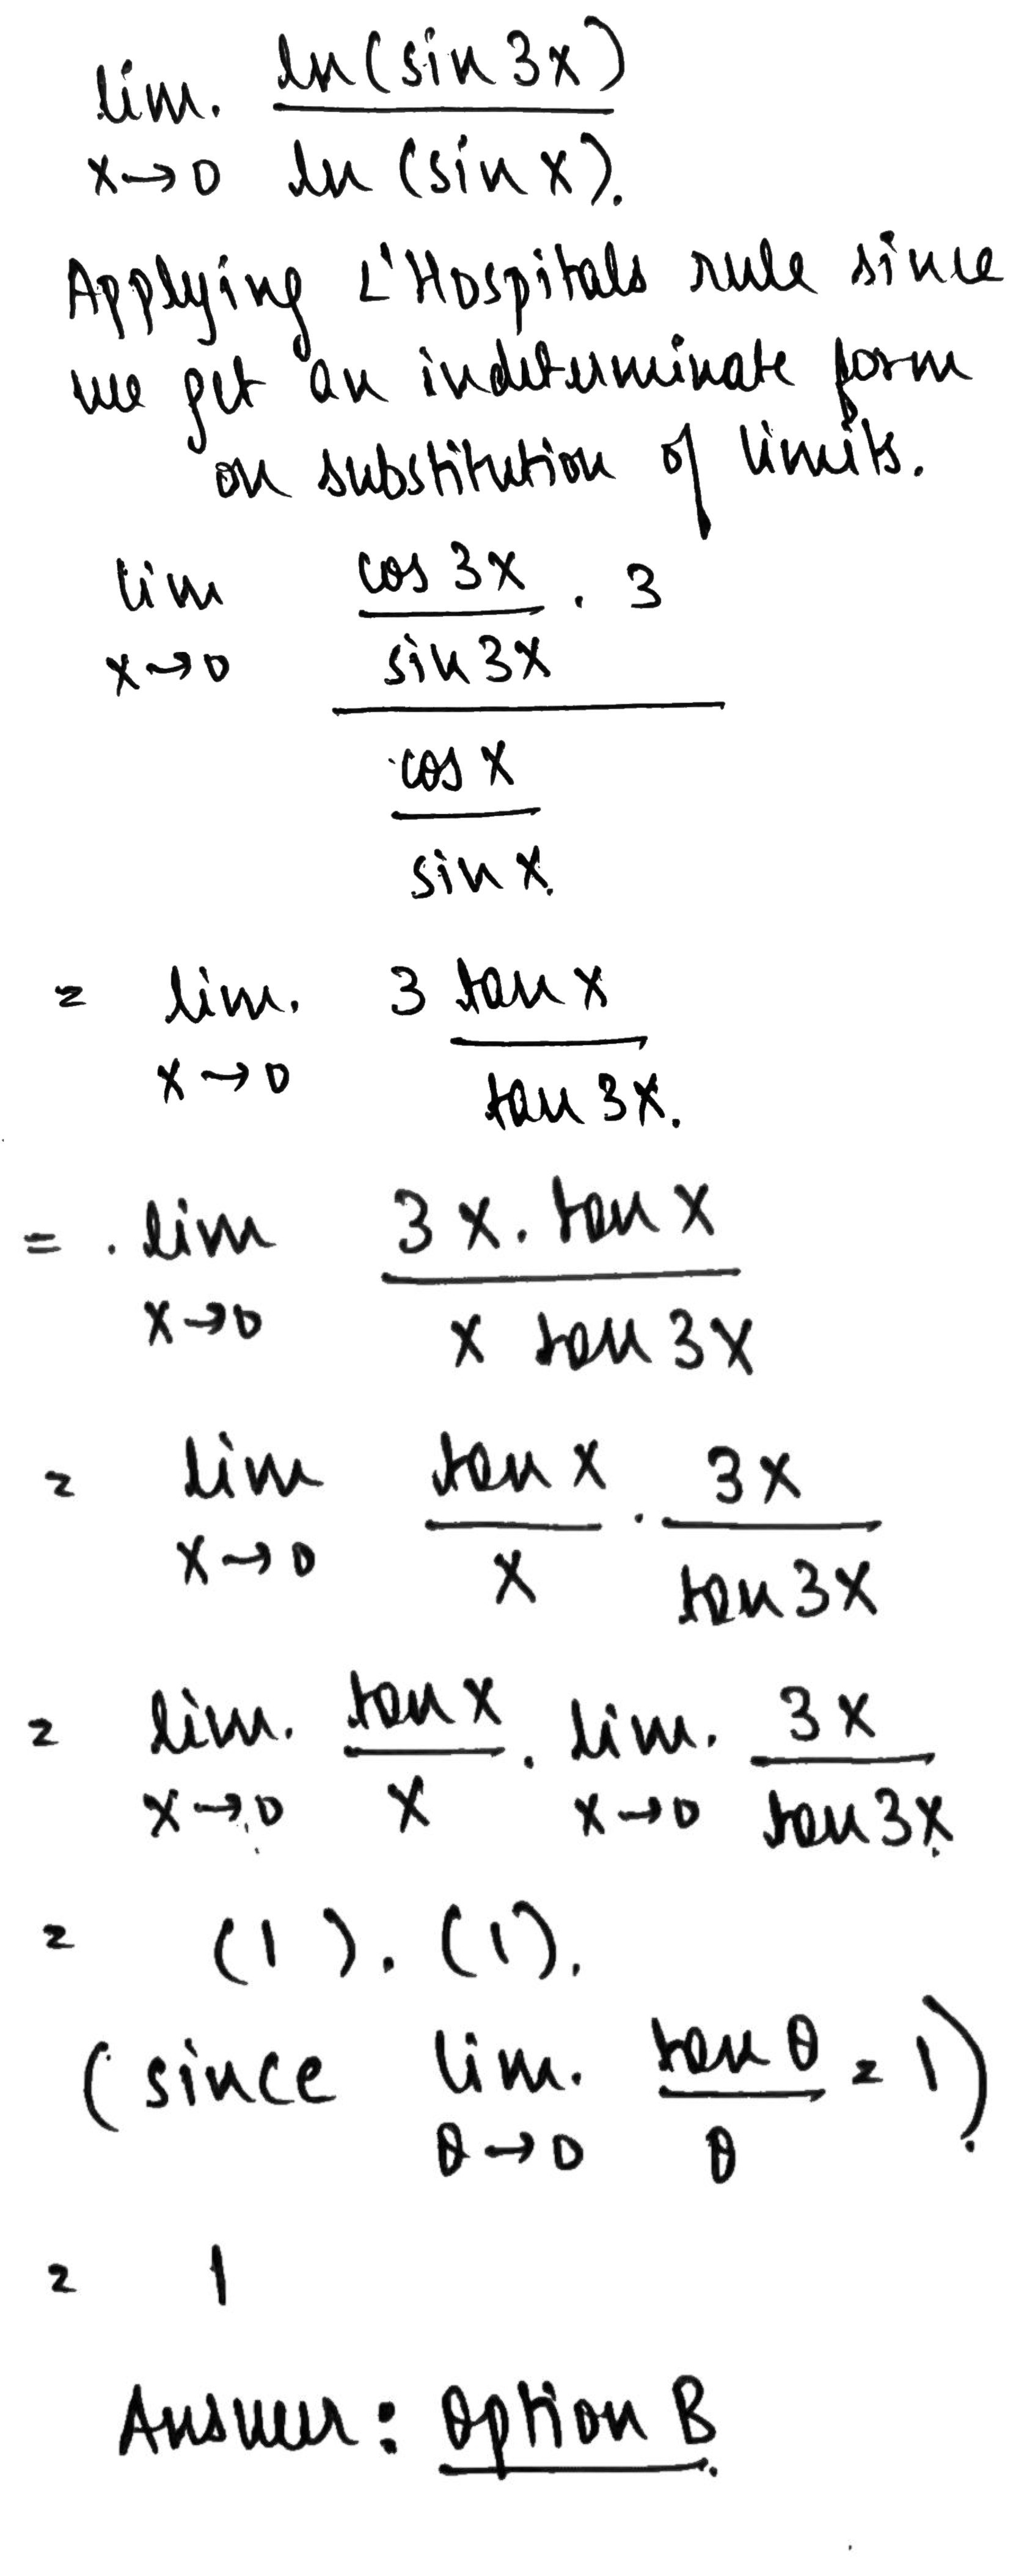 lim. ln(sin 3x)
x→0 ln (sin x).
Applying L'Hospitals rule since
we get an indeterminate form
on substitution of limits.
lim cos 3x . 3
x→0 sin 3x
cos x
sin x.
= lim. 3 tan x
x→0 tan 3x.
= . lim 3x. tan x
x→0 x tan 3x
= lim tan x . 3x
x→0 x tan 3x
= lim. tan x . lim. 3x
x→0 x x→0 tan 3x.
= (1). (1).
(since lim. tan θ = 1).
θ→0 θ
= 1
Answer: Option B.